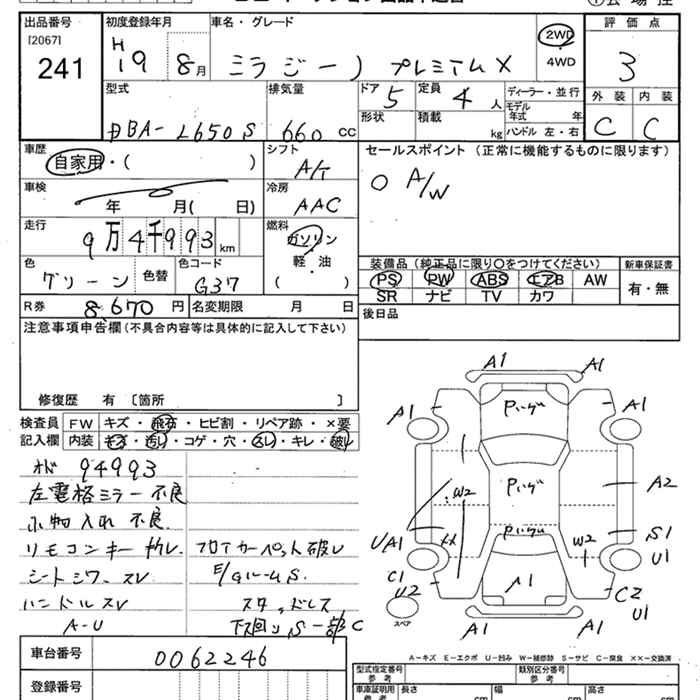 出品番号 初度登録年月 車名・グレード 評価点
[2067] H 2WD
241 19 8月 ミラジーノ プレミアムX ・4WD 3
型式 排気量 ドア 5 定員 4人 ディーラー・並行 外装 内装
モデル年式 年
DBA-L650S 660cc 形状 積載 kg ハンドル 左・右 C C
車歴 シフト セールスポイント (正常に機能するものに限ります)
自家用・( ) A/T ○ A/W
車検 冷房
年 月( 日) AAC
走行 燃料
9万4千993km ガソリン
色 色替 色コード 軽・油 装備品 (純正品に限り○をつけてください) 新車保証書
グリーン G37 ( ) PS PW ABS エアB AW 有・無
R券 8,670円 名変期限 月 日 SR ナビ TV カワ
注意事項申告欄 (不具合内容等は具体的に記入して下さい) 後日品
修復歴 有 〔箇所 〕
検査員 FW キズ・飛石・ヒビ割・リペア跡・×要
記入欄 内装 キズ・汚し・コゲ・穴・スレ・キレ・破レ
94993
左電格ミラー不良
小物入れ不良
リモコンキー フロアカーペット破レ
シートシワ、スレ E/GルームS
ハンドルスレ スタッドレス
A-U 下回りS 一部C
A1 A1
A1 A1
W2 A2
UA1 W2 S1
U1
C1
U2 C2
U1
スペア
A1 A1
A-キズ E-エクボ U-凹み W-補修跡 S-サビ C-腐食 XX-交換済
車台番号 0062246 型式指定番号 参考 類別区分番号 参考
登録番号 車庫証明用 参考 長さ cm 幅 cm 高さ cm